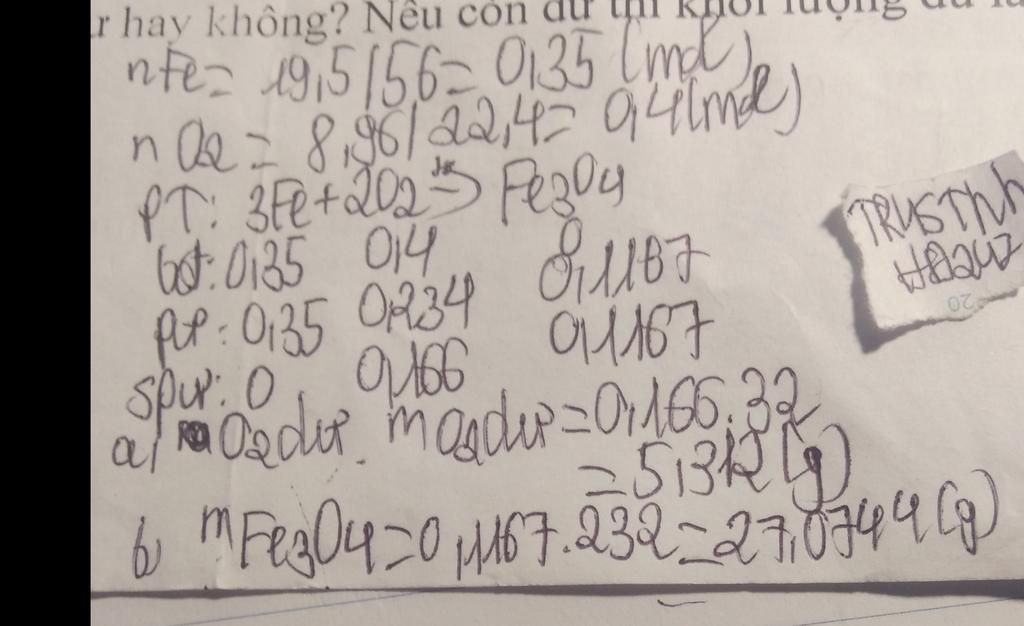 r hay không? Nếu còn dư thì khối lượng dư là
nFe = 19,5/56 = 0,35 (mol)
n O2 = 8,96/22,4 = 0,4 (mol)
PT: 3Fe + 2O2 → Fe3O4
bđ: 0,35 0,4 0
pư: 0,35 0,234 0,1167
spư: 0 0,166 0,1167
a/ O2 dư. mO2dư = 0,166.32
= 5,312 (g)
b, mFe3O4 = 0,1167.232 = 27,0744 (g)
20